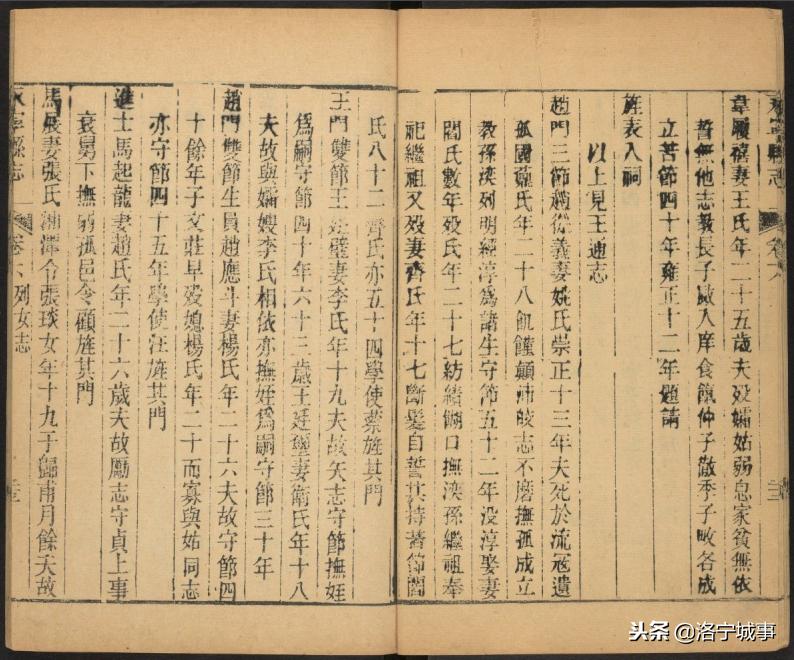 韋履禧妻王氏年二十五歲夫歿孀姑弱息家貧無依
誓無他志教長子
入庠食餼仲子
季子
各成
立苦節四十年雍正十二年題請
旌表入祠
以上見王通志
趙門三節趙從義妻姚氏崇正十三年夫死於流寇遺
孤國
氏年二十八飢饉顛沛皎志不磨撫孤成立
教孫
列明經淳為諸生守節五十二年没淳娶妻
閻氏數年歿氏年二十七紡緒餬口撫
孫繼祖奉
祀繼祖又歿妻齊氏年十七斷髮自誓共持苦節閻
氏八十二齊氏亦五十四學使蔡旌其門
王門雙節王
璧妻李氏年十九夫故矢志守節撫姪
為嗣守節四十年六十三歲王廷璽妻衛氏年十八
夫故與孀嫂李氏相依亦撫姪為嗣守節三十年
趙門雙節生員趙應斗妻楊氏年二十六夫故守節四
十餘年子文莊早歿媳楊氏年二十而寡與姑同志
亦守節四十五年學使汪旌其門
進士馬起龍妻趙氏年二十六歲夫故勵志守貞上事
衰舅下撫弱孤邑令顧旌其門
馬展妻張氏湘潭令張琰女年十九于歸甫月餘夫故
永寧縣志
列女志
头条 @洛宁城事